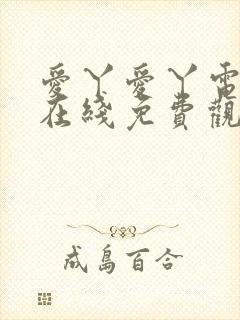 愛丫愛丫電
在綫免費觀
成島百合